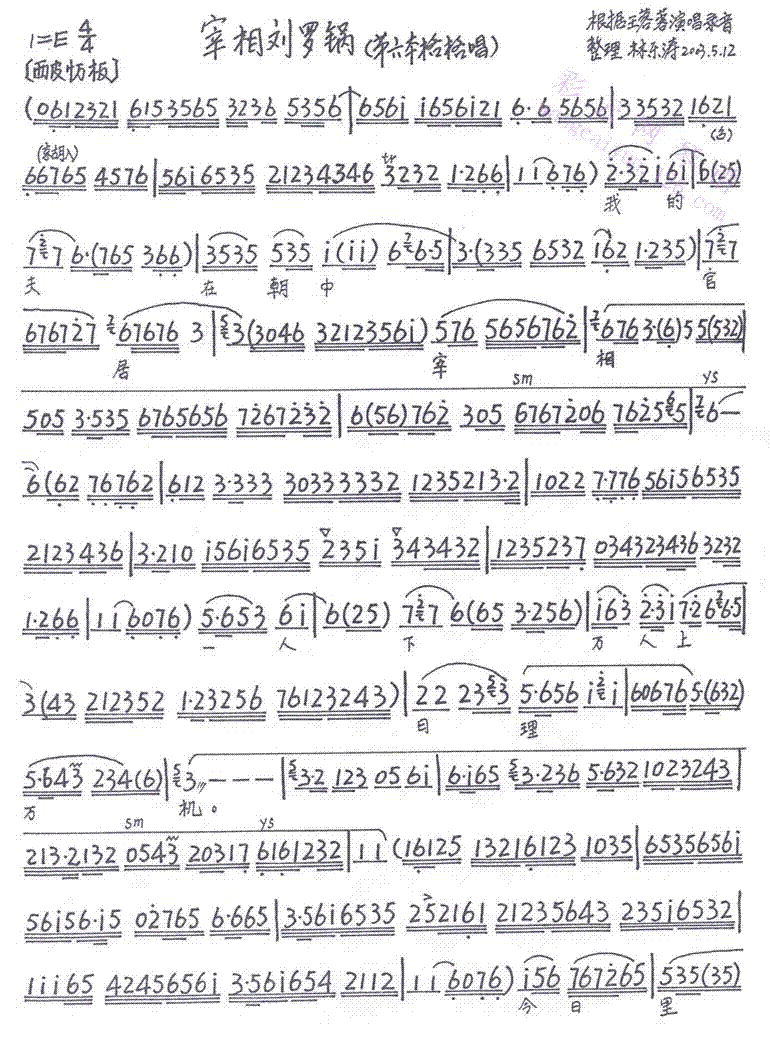 1=E 4/4 宰相刘罗锅(第六本格格唱) 根据王蓉蓉演唱录音
[西皮慢板] 整理 林东涛2003.5.12
(0612321 6153565 3236 5356 | 656i i656i21 6·6 5656 | 33532 1621
66765 4576 | 56i6535 21234346 tr 3232 1·266 | 1 i 676) 2·32i 6i | 6(25)
我 的
7 7 6·(765 366) | 3535 535 i(ii) 6 6·5 | 3·(335 6532 162 1·235) | 7 7
夫 在 朝 中 官
676727 67676 3 | 3(3046 3212356i) 576 5656762 | 676 3·(6) 5 5(532)
居 宰 相
sm ys
505 3·535 6765656 7267232 | 6(56)762 305 6767206 7625 5 | 6 —
6(62 76762 | 612 3·333 30333332 1235213·2 | 1022 7·776 56i56535
2123436 | 3·210 i56i6535 235i 343432 | 1235237 034323436 3232
1·266 | 1 i 6076) 5·653 6i | 6(25) 7 7 6(65 3·256) | i63 2·3i 7·2 6 6·5
一 人 下 万 人 上
3(43 212352 1·23256 76123243) | 22 23 3 5·656 i i | 60676 5·(632)
日 理
5·643 234(6) | 3 — — — | 3·2 123 05 6i | 6·i65 3·236 5·632 1023243 |
万 机。
sm ys
213·2132 0543 20317 6161232 | 1 i (16125 13216123 1035 | 6535656i
56i56·i5 02765 6·665 | 3·56i6535 252161 21235643 235i6532 |
1ii65 4245656i 3·56i654 2112 | 1 i 6076) i56 767265 | 535(35)
今 日 里